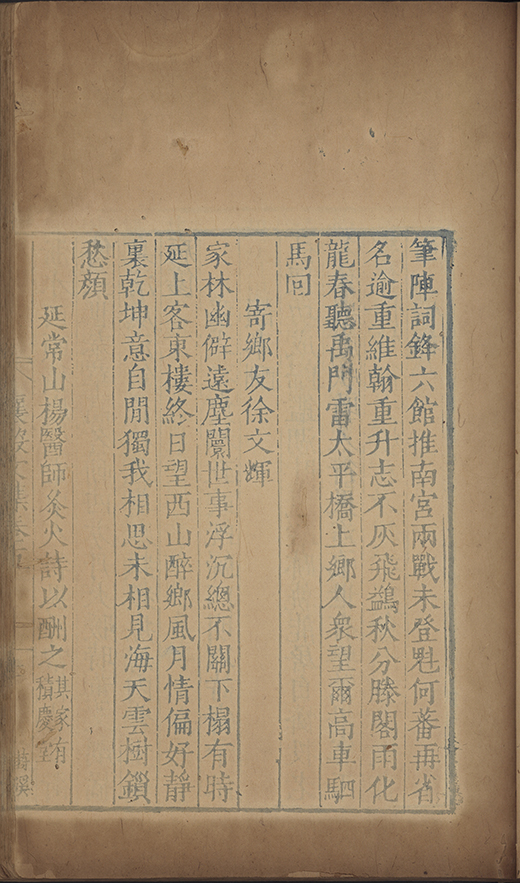 筆陣詞鋒六館推南宮兩戰未登魁何蕃再省
名逾重維翰重升志不灰飛鷁秋分滕閣雨化
龍春聽禹門雷太平橋上鄉人衆望爾高車駟
馬回
寄鄉友徐文輝
家林幽僻遠塵闤世事浮沉總不關下榻有時
延上客東樓終日望西山醉鄉風月情偏好靜
裏乾坤意自閒獨我相思未相見海天雲樹鎖
愁顏
延常山楊醫師灸火詩以酬之其家有積慶堂